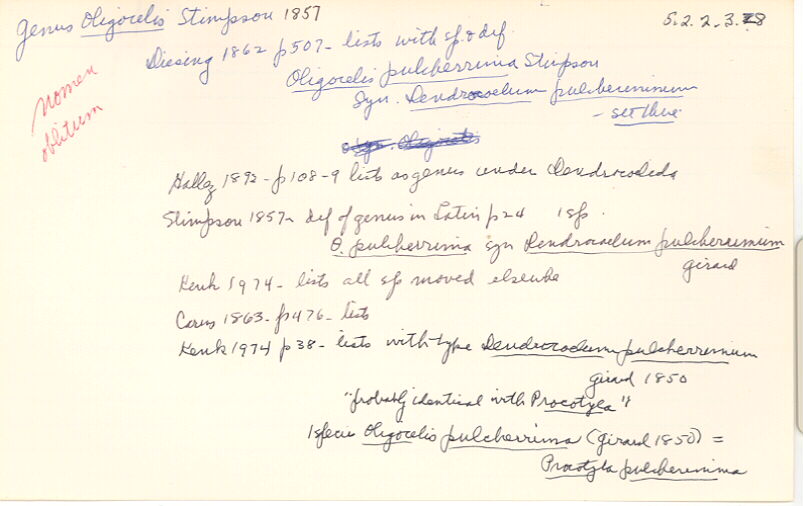 Genus Oligocelis Stimpson 1857
5.2.2.3.8
Diesing 1862 p507- lists with sp. & def.
Oligocelis pulcherrima Stimpson
Syn. Dendrocoelum pulcherrimum
- see there
nomen
oblitum
Hallez 1892- p108-9 lists as genus under Dendrocoelida
Stimpson 1857- def of genus in Latin p24 1 sp.
O. pulcherrima syn Dendrocoelum pulcherrimum
Girard
Kenk 1974- lists all sp moved elsewhere
Carus 1863- p476- lists
Kenk 1974 p38- lists with type Dendrocoelum pulcherrimum
Girard 1850
"probably identical with Procotyla"
1 specie Oligocelis pulcherrima (Girard 1850) =
Procotyla pulcherrima